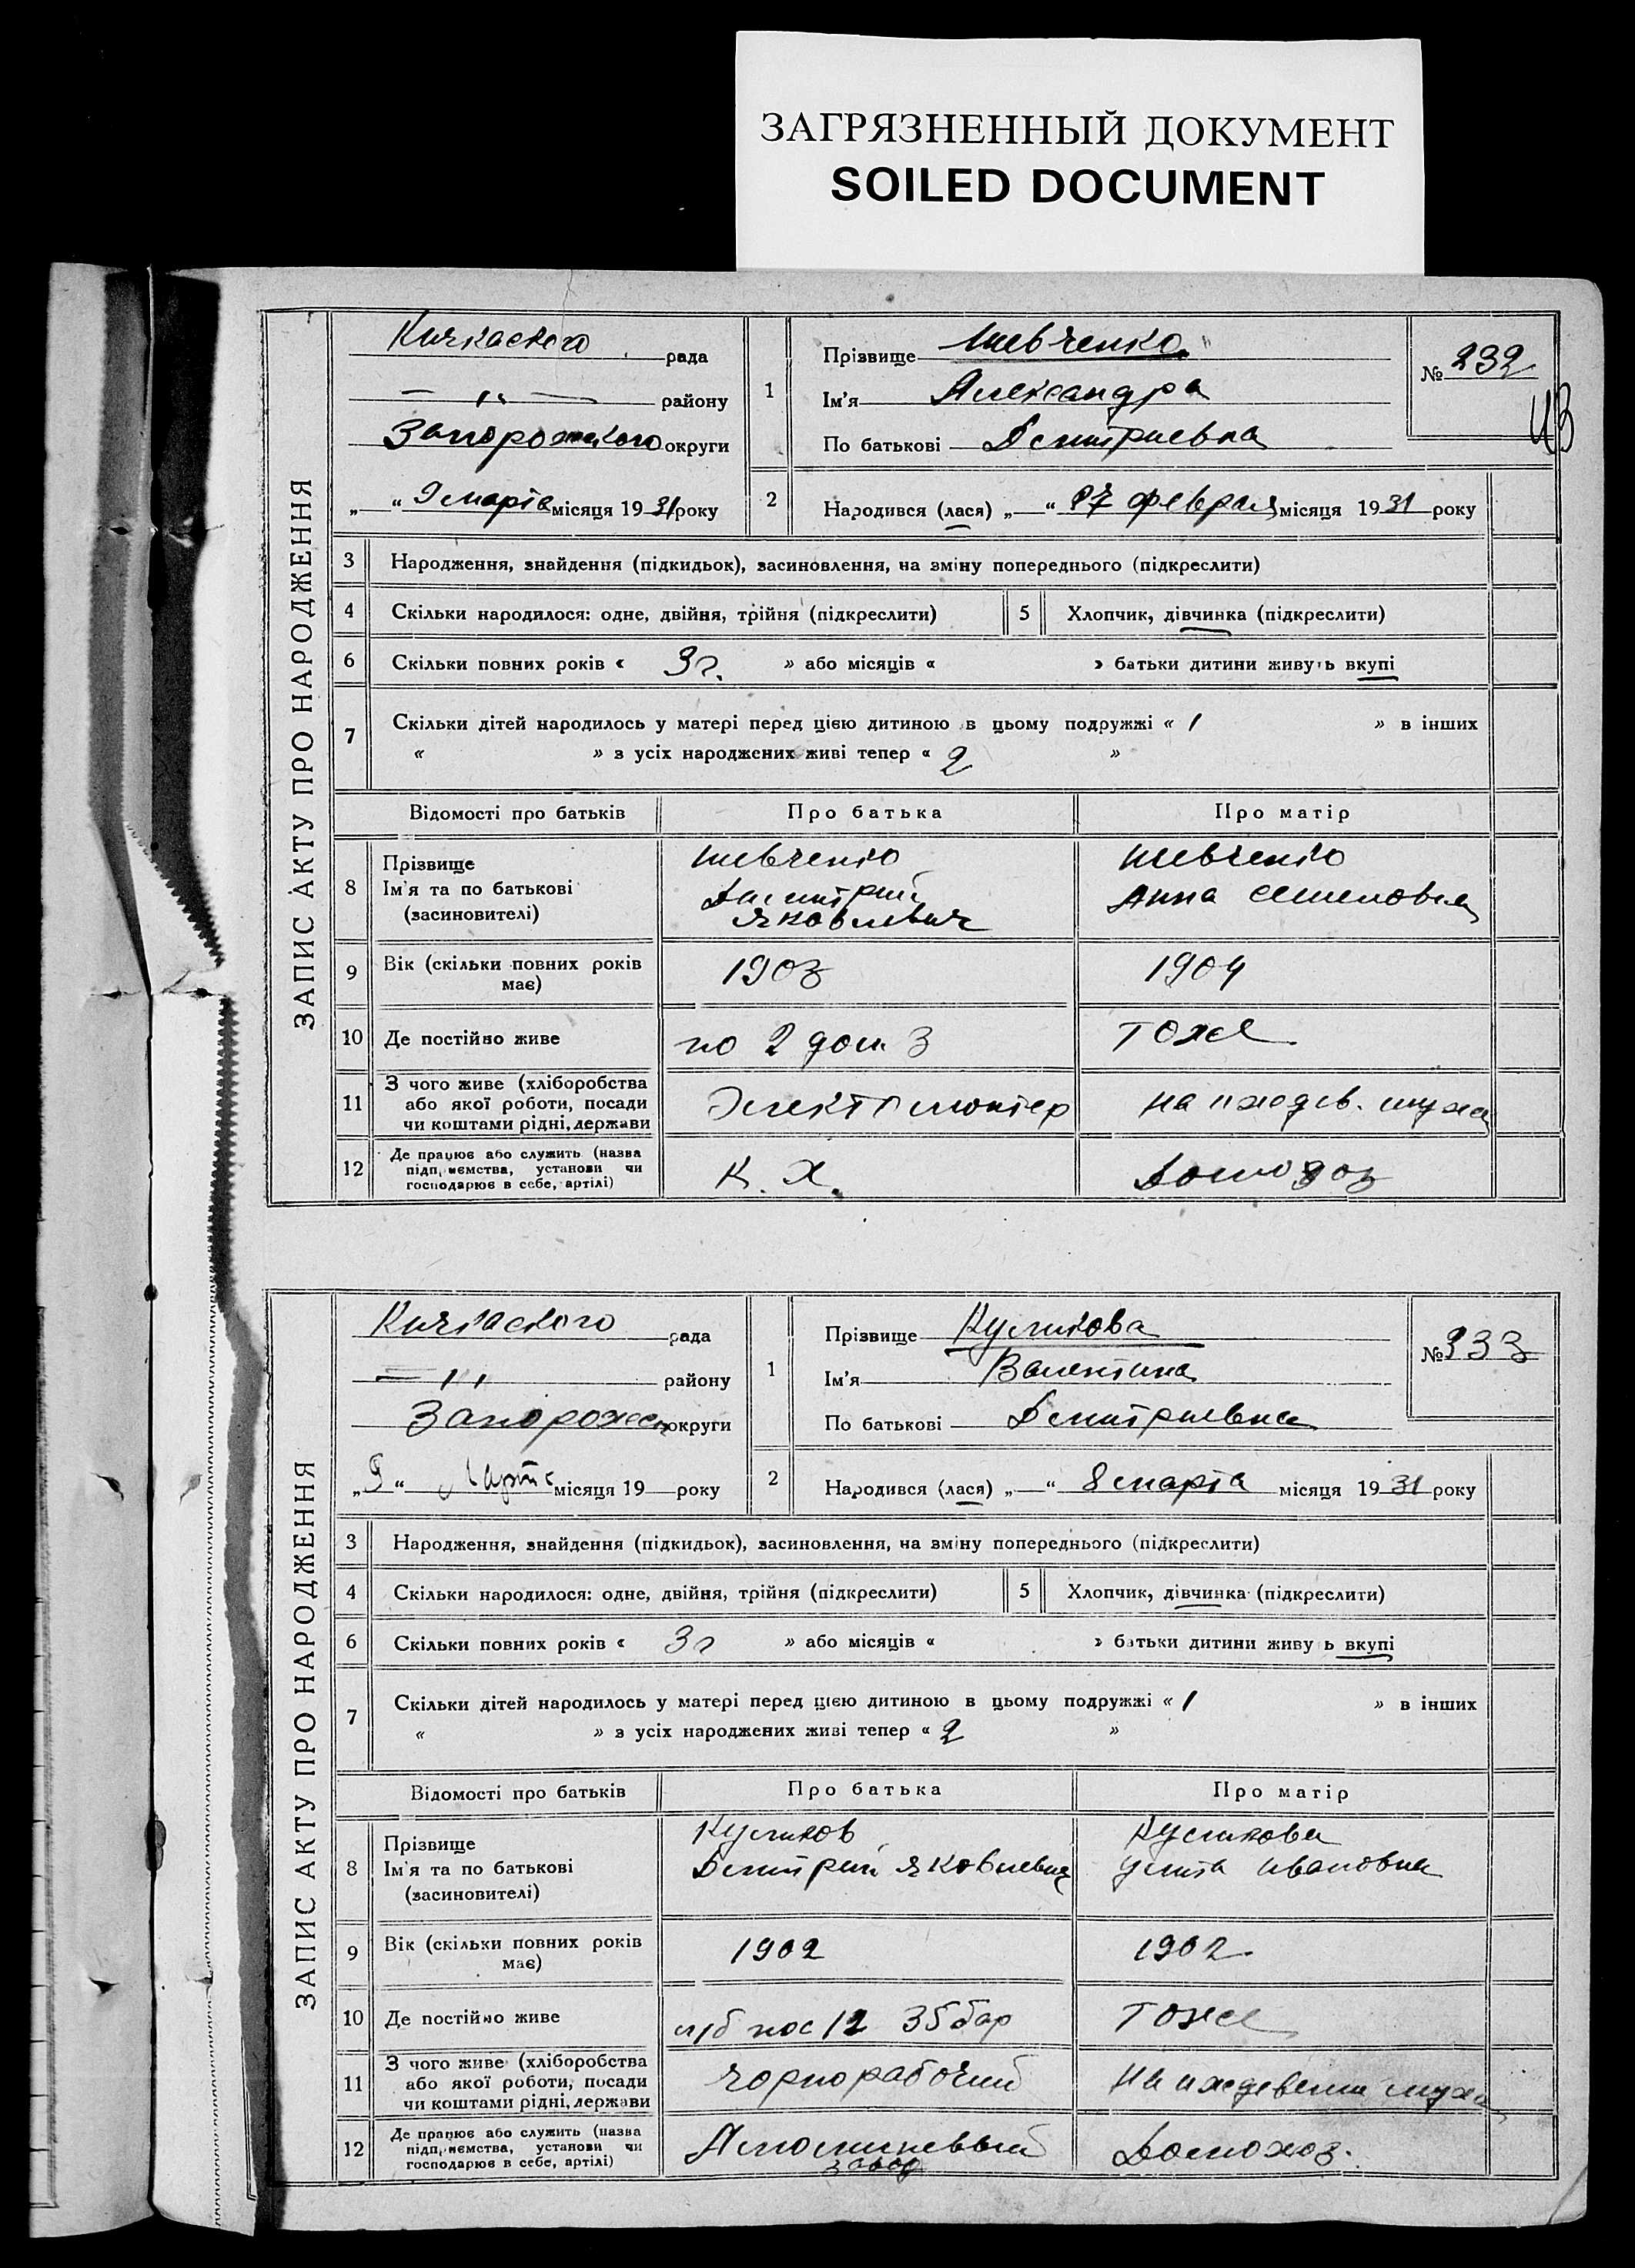 ЗАГРЯЗНЕННЫЙ ДОКУМЕНТ
SOILED DOCUMENT
ЗАПИС АКТУ ПРО НАРОДЖЕННЯ
Кичкаского рада
— „ — району
Запорожского округи
„ “ 9 марта місяця 1931 року
1
Прізвище Шевченко
Ім'я Александра
По батькові Дмитриевна
№ 232
43
2
Народився (лася) „ “ 27 февраля місяця 1931 року
3 Народження, знайдення (підкидьок), засиновлення, на зміну попереднього (підкреслити)
4 Скільки народилося: одне, двійня, трійня (підкреслити) 5 Хлопчик, дівчинка (підкреслити)
6 Скільки повних років « 3 г. » або місяців « » батьки дитини живуть вкупі
7 Скільки дітей народилось у матері перед цією дитиною в цьому подружжі « 1 » в інших
« » з усіх народжених живі тепер « 2 »
Відомості про батьків Про батька Про матір
8 Прізвище Шевченко Шевченко
Ім'я та по батькові Дмитрий Анна Семеновна
(засиновителі) Яковлевич
9 Вік (скільки повних років 1903 1904
має)
10 Де постійно живе по 2 дом 3 тоже
11 З чого живе (хліборобства
або якої роботи, посади Электромонтер на иждев. мужа
чи коштами рідні, держави
12 Де працює або служить (назва
підприємства, установи чи К. Х. Домохоз
господарює в себе, артілі)
ЗАПИС АКТУ ПРО НАРОДЖЕННЯ
Кичкаского рада
— „ району
Запорожск округи
„9“ Марта місяця 19 року
1
Прізвище Куликова
Ім'я Валентина
По батькові Дмитриевна
№ 233
2
Народився (лася) „ “ 8 марта місяця 1931 року
3 Народження, знайдення (підкидьок), засиновлення, на зміну попереднього (підкреслити)
4 Скільки народилося: одне, двійня, трійня (підкреслити) 5 Хлопчик, дівчинка (підкреслити)
6 Скільки повних років « 3 г » або місяців « » батьки дитини живуть вкупі
7 Скільки дітей народилось у матері перед цією дитиною в цьому подружжі « 1 » в інших
« » з усіх народжених живі тепер « 2 »
Відомості про батьків Про батька Про матір
8 Прізвище Куликов Куликова
Ім'я та по батькові Дмитрий Яковлевич Ивановна
(засиновителі)
9 Вік (скільки повних років 1902 1902
має)
10 Де постійно живе пос 12 35 бар тоже
11 З чого живе (хліборобства
або якої роботи, посади чорнорабочий на иждевении мужа
чи коштами рідні, держави
12 Де працює або служить (назва
підприємства, установи чи Алюминевый Домохоз.
господарює в себе, артілі) завод